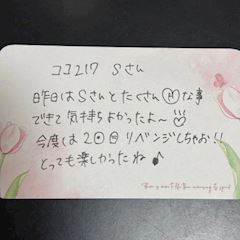 ココ217 Sさん
昨日はSさんとたくさんⒽな事
できて気持ちよかったよ〜
今度は2回目リベンジしちゃお!!
とっても楽しかったね♪